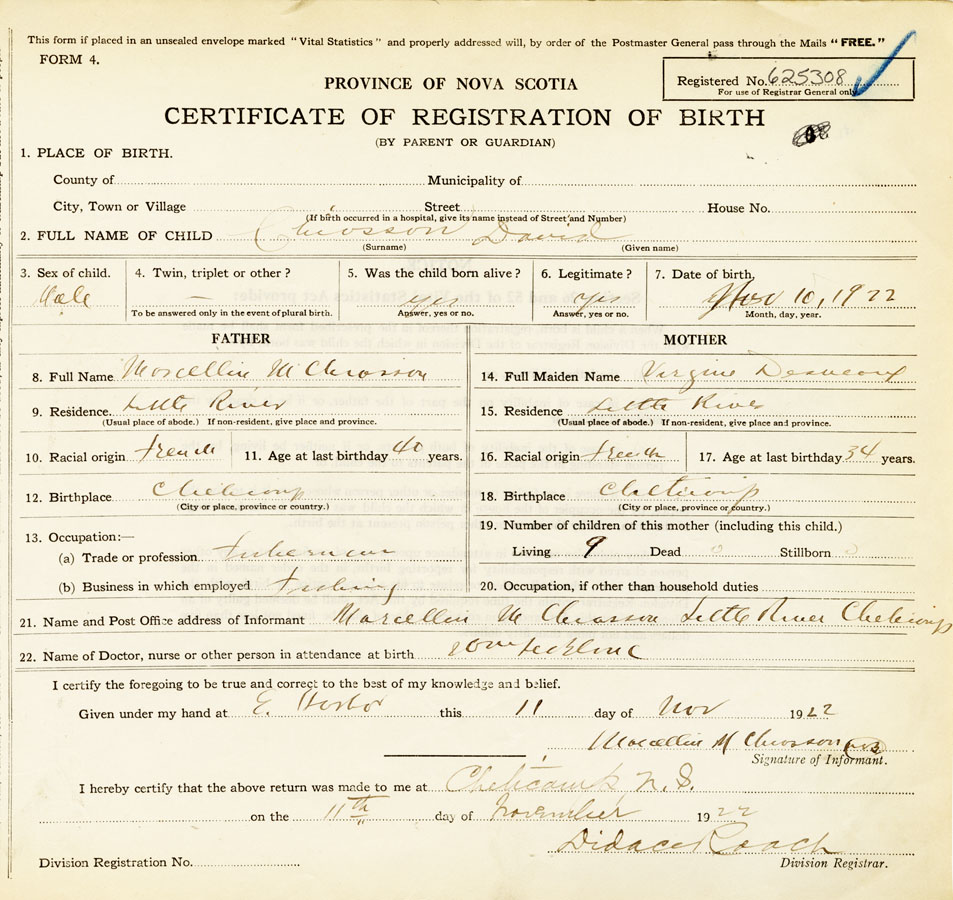 This form if placed in an unsealed envelope marked "Vital Statistics" and properly addressed will, by order of the Postmaster General pass through the Mails "FREE."
FORM 4.
Registered No. 625308
For use of Registrar General only
PROVINCE OF NOVA SCOTIA
CERTIFICATE OF REGISTRATION OF BIRTH
(BY PARENT OR GUARDIAN)
1. PLACE OF BIRTH.
County of Municipality of
City, Town or Village Street House No.
(If birth occurred in a hospital, give its name instead of Street and Number)
2. FULL NAME OF CHILD Chiosson David
(Surname) (Given name)
3. Sex of child. 4. Twin, triplet or other? 5. Was the child born alive? 6. Legitimate? 7. Date of birth,
Male — yes yes Nov 10, 1922
To be answered only in the event of plural birth. Answer, yes or no. Answer, yes or no. Month, day, year.
FATHER MOTHER
8. Full Name Marcellin M Chiasson 14. Full Maiden Name Virginie Deaveaux
9. Residence. Little River 15. Residence Little River
(Usual place of abode.) If non-resident, give place and province. (Usual place of abode.) If non-resident, give place and province.
10. Racial origin French 11. Age at last birthday 40 years. 16. Racial origin French 17. Age at last birthday 34 years.
12. Birthplace Cheticamp 18. Birthplace Cheticamp
(City or place, province or country.) (City or place, province or country.)
19. Number of children of this mother (including this child.)
13. Occupation:—
Living 9 Dead 0 Stillborn 0
(a) Trade or profession fisherman
(b) Business in which employed Fishing 20. Occupation, if other than household duties
21. Name and Post Office address of Informant Marcellin M Chiasson Little River Cheticamp
22. Name of Doctor, nurse or other person in attendance at birth
I certify the foregoing to be true and correct to the best of my knowledge and belief.
Given under my hand at E. Harbor this 11 day of Nov 1922
Marcellin M Chiasson
Signature of Informant.
I hereby certify that the above return was made to me at Cheticamp N. S.
on the 11th day of November 1922
Didace Roach
Division Registration No. Division Registrar.